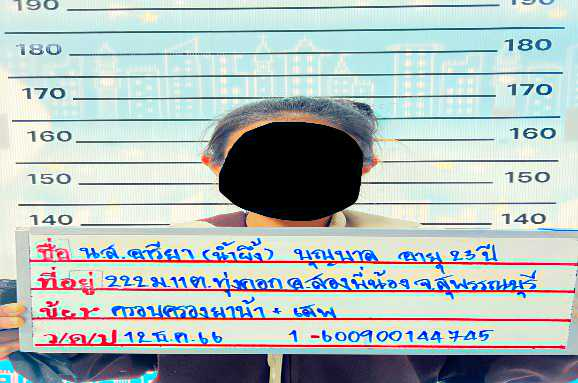 190 190
180 180
170 170
160 160
150 150
140 140
ชื่อ น.ส. (น้ำผึ้ง) บุญนาค อายุ 23 ปี
ที่อยู่ 222 ม.11 ต.ทุ่งคอก อ.สองพี่น้อง จ.สุพรรณบุรี
ข้อหา ครอบครองยาบ้า + เสพ
ว/ด/ป 12 ธ.ค.66 1-600900144745